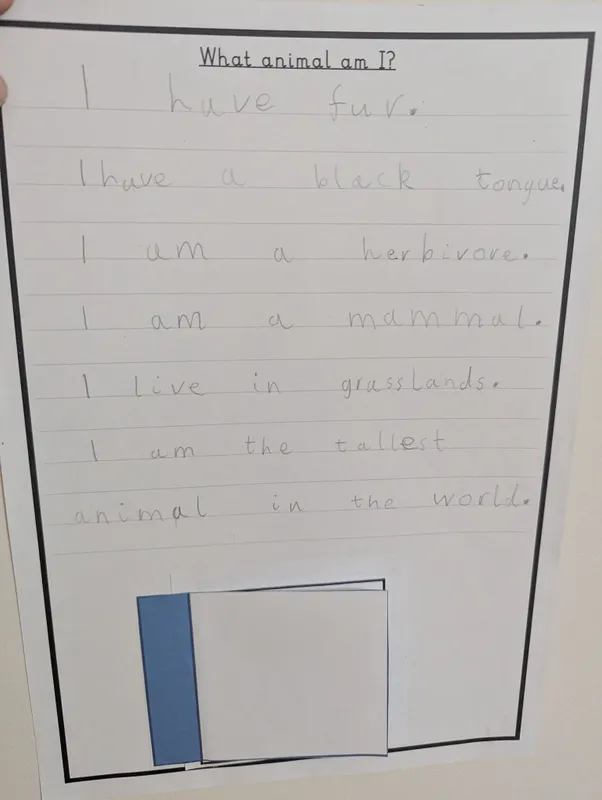 What animal am I?
I have fur.
I have a black tongue.
I am a herbivore.
I am a mammal.
I live in grasslands.
I am the tallest
animal in the world.